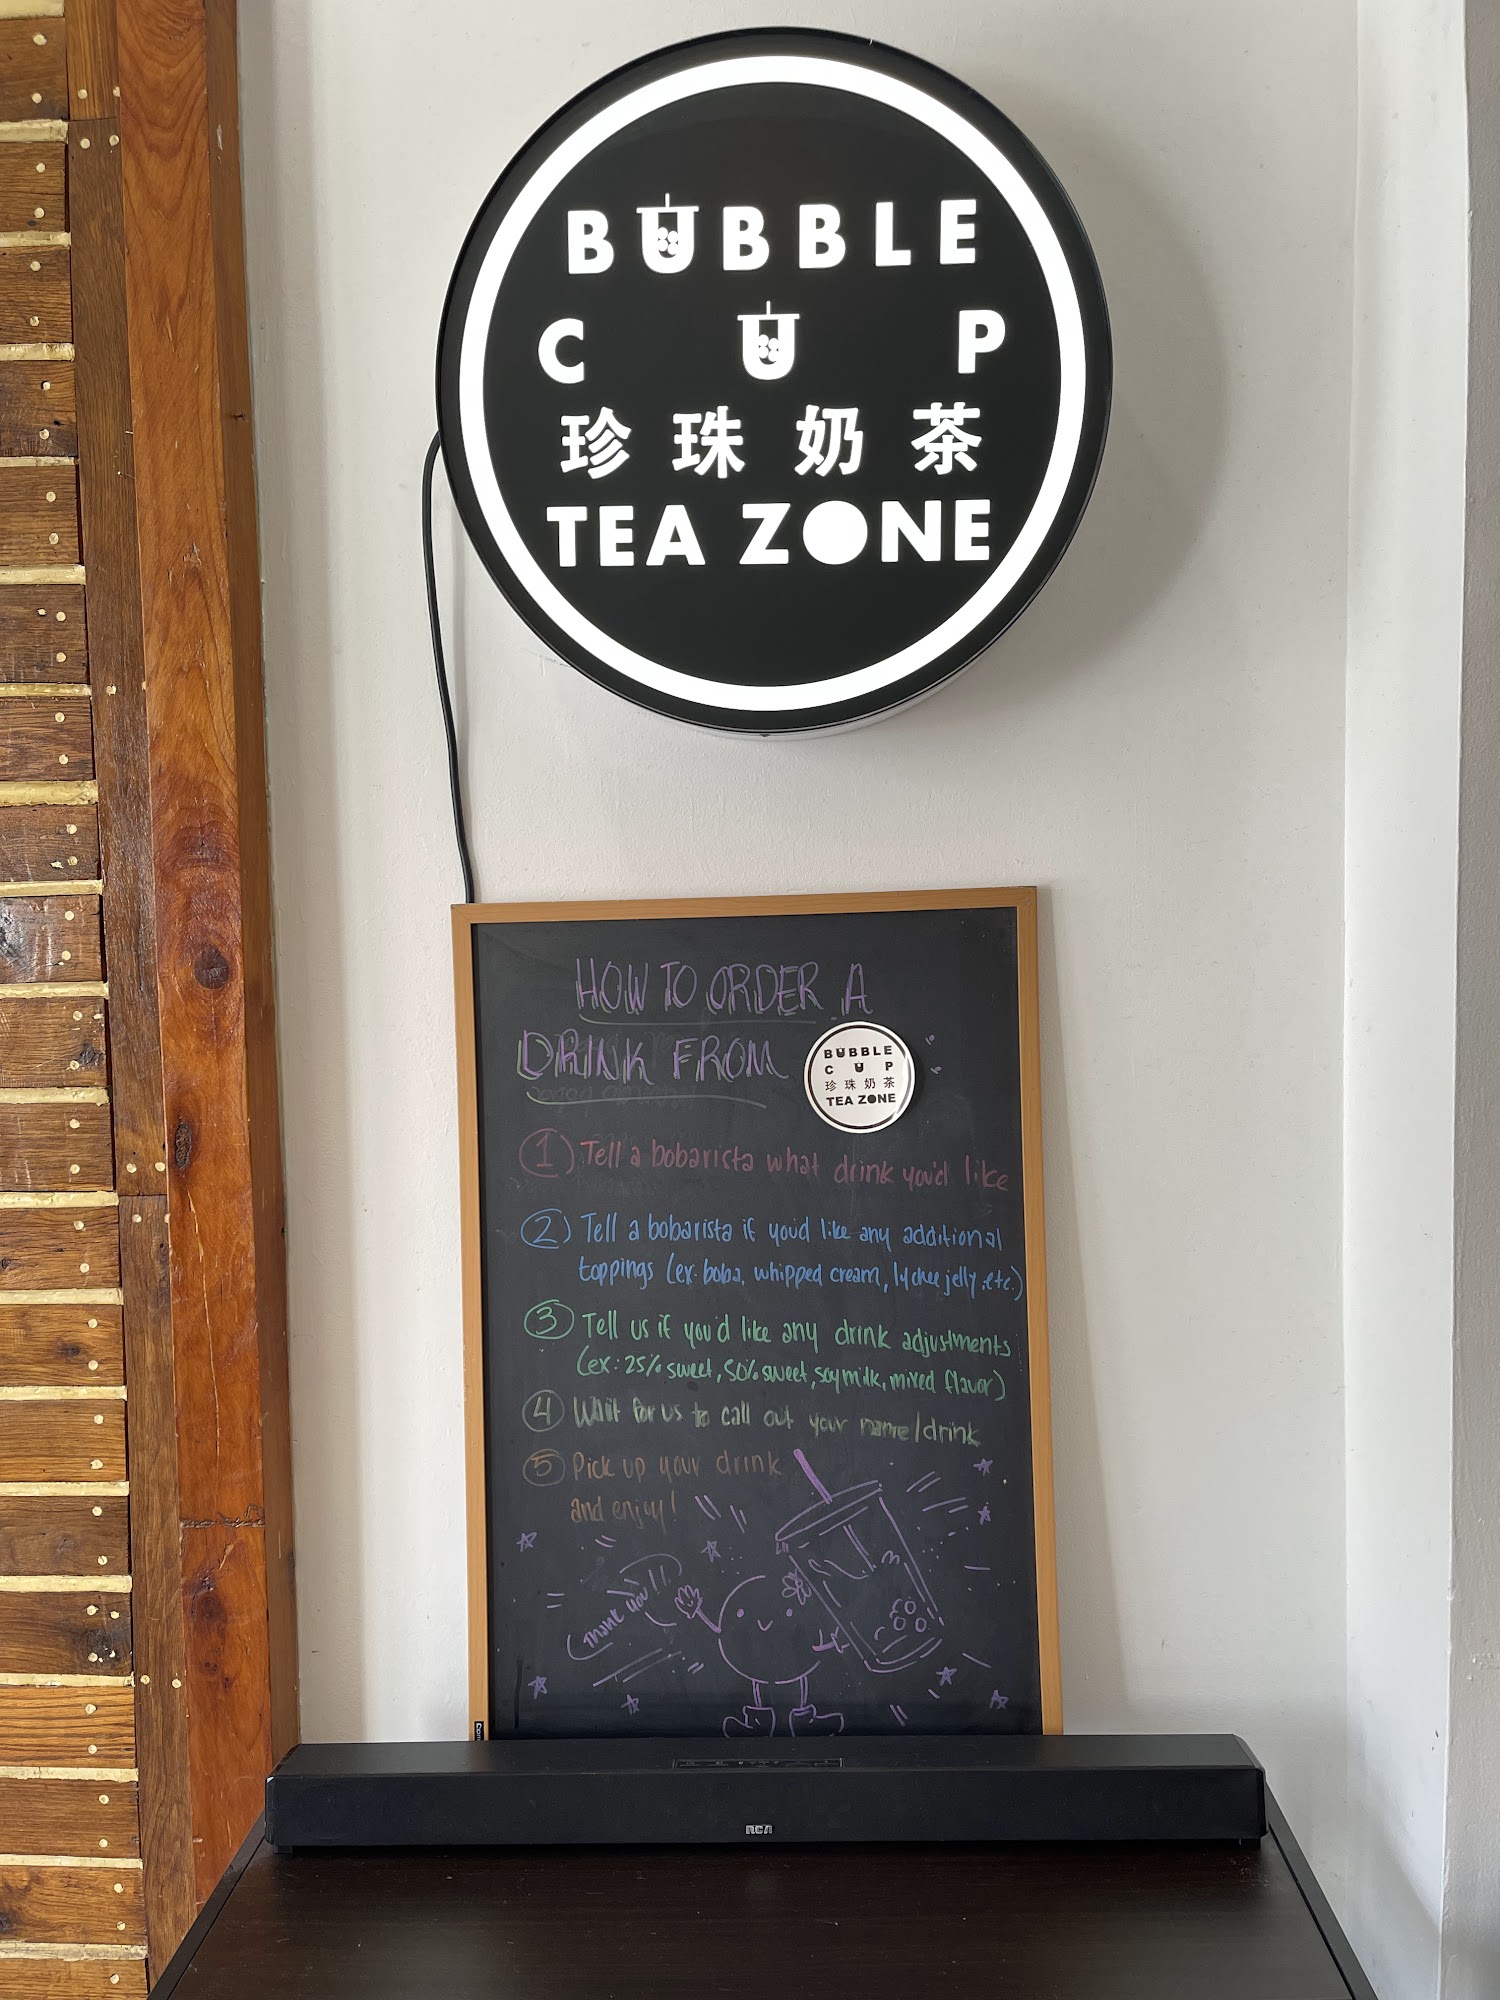 BUBBLE
CUP
珍珠奶茶
TEA ZONE
HOW TO ORDER A
DRINK FROM
BUBBLE
CUP
珍珠奶茶
TEA ZONE
1 Tell a bobarista what drink you'd like
2 Tell a bobarista if you'd like any additional
toppings (ex: boba, whipped cream, lychee jelly, etc.)
3 Tell us if you'd like any drink adjustments
(ex: 25% sweet, 50% sweet, soy milk, mixed flavor)
4 Wait for us to call out your name/drink
5 Pick up your drink
and enjoy!
Thank you!!
RCA